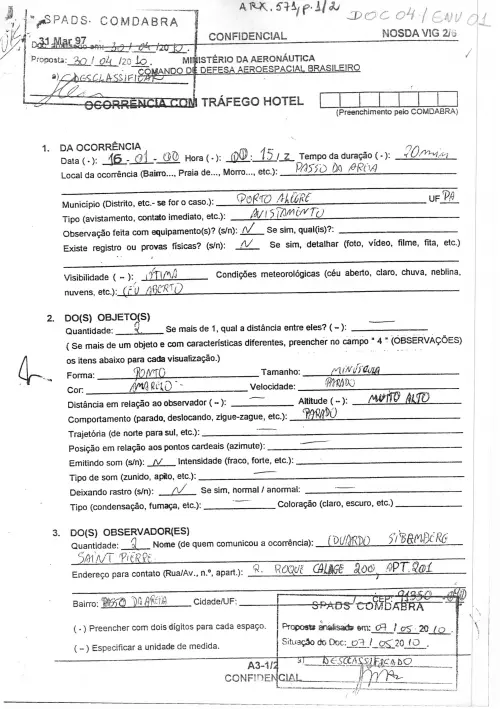 ARX. 571, p. 1/2
DOC 04 / ENV 01
SPADS - COMDABRA
31 Mar 97
CONFIDENCIAL
NOSDA VIG 2/6
Doc analisado em: 30 / 04 / 2010.
Proposta: 30 / 04 / 2010.
MINISTÉRIO DA AERONÁUTICA
a) DESCLASSIFICAR
COMANDO DE DEFESA AEROESPACIAL BRASILEIRO
OCORRÊNCIA COM TRÁFEGO HOTEL
(Preenchimento pelo COMDABRA)
1. DA OCORRÊNCIA
Data (-): 16 - 01 - 00 Hora (-): 00 : 15 / Z Tempo da duração (-): 20 min
Local da ocorrência (Bairro..., Praia de..., Morro..., etc.): PASSO DA AREIA
Município (Distrito, etc.- se for o caso.): PORTO ALEGRE UF PA
Tipo (avistamento, contato imediato, etc.): AVISTAMENTO
Observação feita com equipamento(s)? (s/n): N Se sim, qual(is)?:
Existe registro ou provas físicas? (s/n): N Se sim, detalhar (foto, vídeo, filme, fita, etc.)
Visibilidade ( ~ ): ÓTIMA Condições meteorológicas (céu aberto, claro, chuva, neblina,
nuvens, etc.): CÉU ABERTO
2. DO(S) OBJETO(S)
Quantidade: 2 Se mais de 1, qual a distância entre eles? ( ~ ):
( Se mais de um objeto e com características diferentes, preencher no campo " 4 " (OBSERVAÇÕES)
os itens abaixo para cada visualização.)
Forma: PONTO Tamanho: MINÚSCULA
Cor: AMARELO - Velocidade: PARADO
Distância em relação ao observador ( ~ ): Altitude ( ~ ): MUITO ALTO
Comportamento (parado, deslocando, zigue-zague, etc.): PARADO
Trajetória (de norte para sul, etc.):
Posição em relação aos pontos cardeais (azimute):
Emitindo som (s/n): N Intensidade (fraco, forte, etc.):
Tipo de som (zunido, apito, etc.):
Deixando rastro (s/n): N Se sim, normal / anormal:
Tipo (condensação, fumaça, etc.): Coloração (claro, escuro, etc.)
3. DO(S) OBSERVADOR(ES)
Quantidade: 2 Nome (de quem comunicou a ocorrência): EDUARDO
SAINT PIERRE
Endereço para contato (Rua/Av., n.º, apart.): R. ROQUE CALAGE 200, APT. 201
Bairro: PASSO DA AREIA Cidade/UF: CEP: 91350
( - ) Preencher com dois dígitos para cada espaço.
( ~ ) Especificar a unidade de medida.
SPADS COMDABRA
Proposta analisada em: 07 / 05 2010.
Situação do Doc: 07 / 05 2010.
a) DESCLASSIFICADO
A3-1/2
CONFIDENCIAL